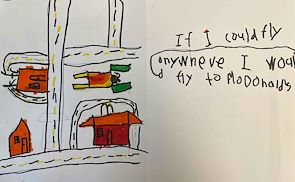 If I could fly
anywhere I woul
d fly to McDonald's